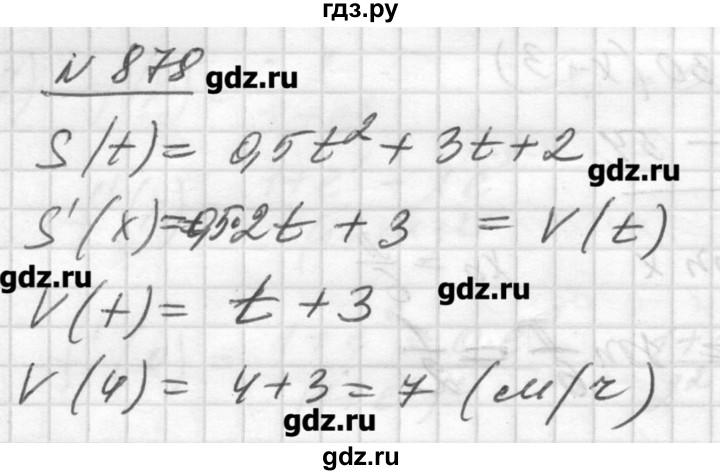 гдз.ру
N 878
gdz.ru
S(t) = 0,5t² + 3t + 2
gdz.ru
S'(x) = 0,5·2t + 3 = V(t)
gdz.ru
V(t) = t + 3
gdz.ru
V(4) = 4 + 3 = 7 (м/с)
gdz.ru
gdz.ru